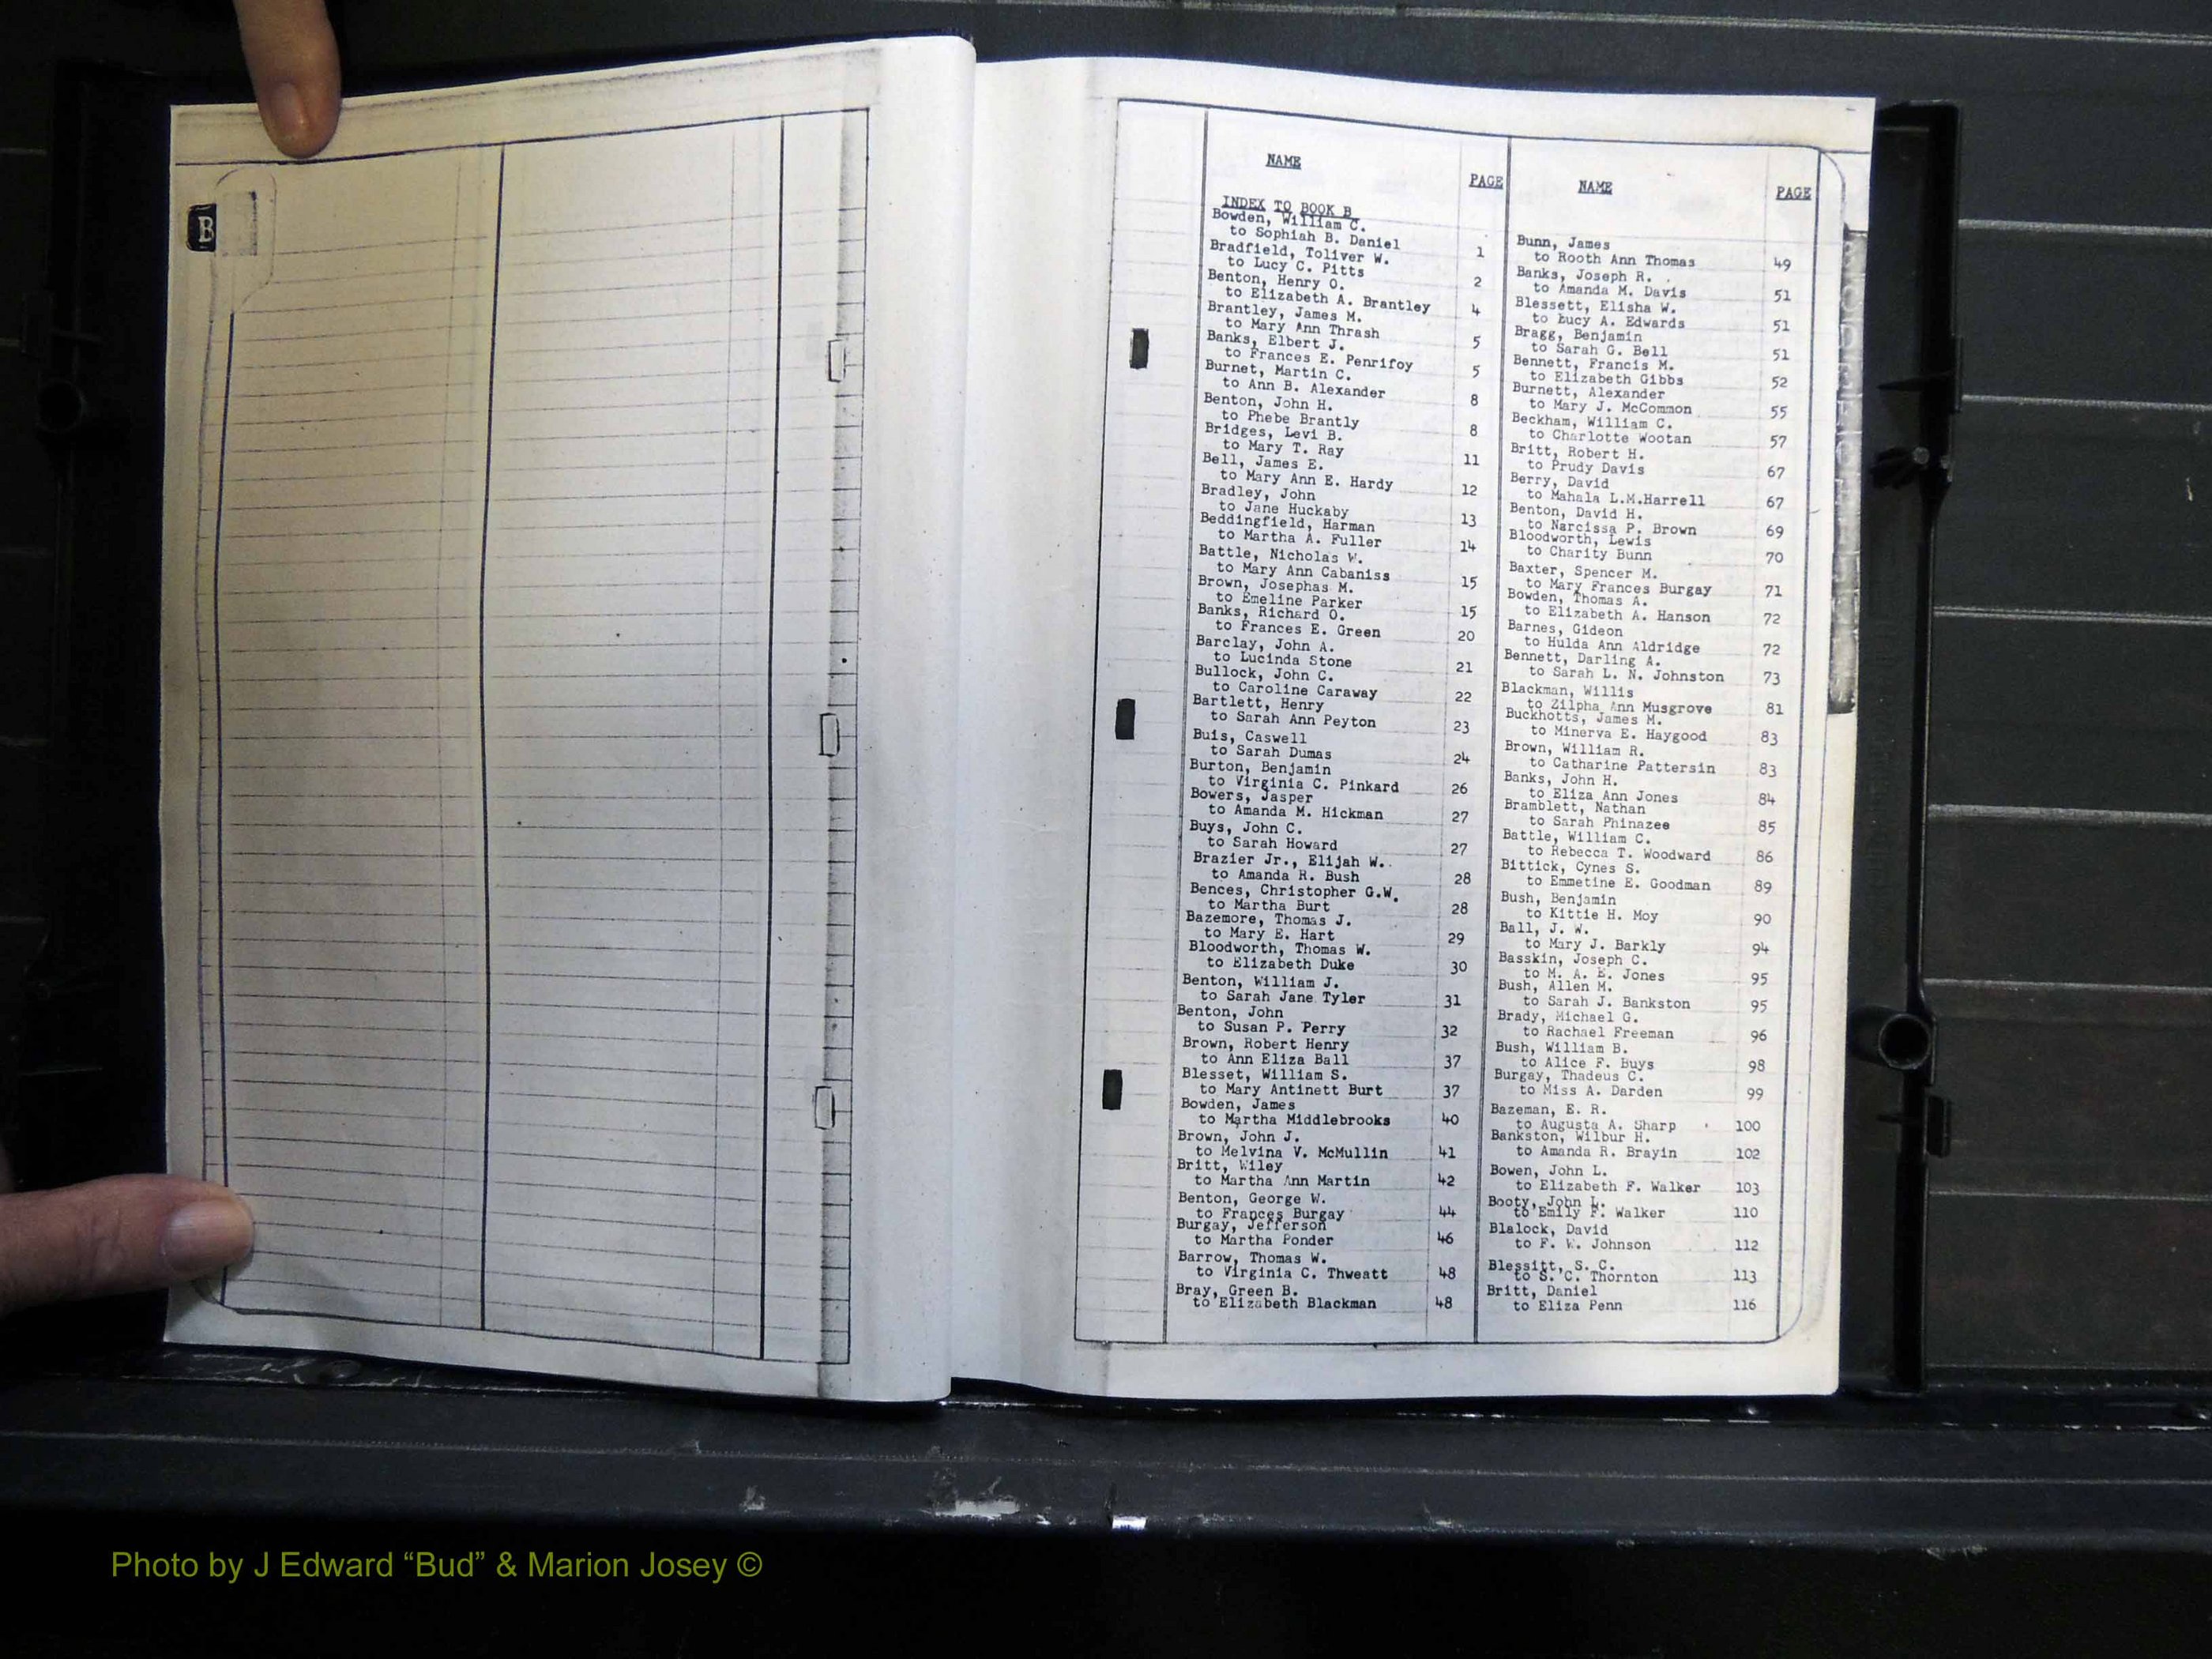 B
NAME PAGE
INDEX TO BOOK B
Bowden, William C.
to Sophiah B. Daniel 1
Bradfield, Toliver W.
to Lucy C. Pitts 2
Benton, Henry O.
to Elizabeth A. Brantley 4
Brantley, James M.
to Mary Ann Thrash 5
Banks, Elbert J.
to Frances E. Penrifoy 5
Burnet, Martin C.
to Ann B. Alexander 8
Benton, John H.
to Phebe Brantly 8
Bridges, Levi B.
to Mary T. Ray 11
Bell, James E.
to Mary Ann E. Hardy 12
Bradley, John
to Jane Huckaby 13
Beddingfield, Harman
to Martha A. Fuller 14
Battle, Nicholas W.
to Mary Ann Cabaniss 15
Brown, Josephas M.
to Emeline Parker 15
Banks, Richard O.
to Frances E. Green 20
Barclay, John A.
to Lucinda Stone 21
Bullock, John C.
to Caroline Caraway 22
Bartlett, Henry
to Sarah Ann Peyton 23
Buis, Caswell
to Sarah Dumas 24
Burton, Benjamin
to Virginia C. Pinkard 26
Bowers, Jasper
to Amanda M. Hickman 27
Buys, John C.
to Sarah Howard 27
Brazier Jr., Elijah W.
to Amanda R. Bush 28
Bences, Christopher G.W.
to Martha Burt 28
Bazemore, Thomas J.
to Mary E. Hart 29
Bloodworth, Thomas W.
to Elizabeth Duke 30
Benton, William J.
to Sarah Jane Tyler 31
Benton, John
to Susan P. Perry 32
Brown, Robert Henry
to Ann Eliza Ball 37
Blesset, William S.
to Mary Antinett Burt 37
Bowden, James
to Martha Middlebrooks 40
Brown, John J.
to Melvina V. McMullin 41
Britt, Wiley
to Martha Ann Martin 42
Benton, George W.
to Frances Burgay 44
Burgay, Jefferson
to Martha Ponder 46
Barrow, Thomas W.
to Virginia C. Thweatt 48
Bray, Green B.
to Elizabeth Blackman 48
NAME PAGE
Bunn, James
to Rooth Ann Thomas 49
Banks, Joseph R.
to Amanda M. Davis 51
Blessett, Elisha W.
to Lucy A. Edwards 51
Bragg, Benjamin
to Sarah G. Bell 51
Bennett, Francis M.
to Elizabeth Gibbs 52
Burnett, Alexander
to Mary J. McCommon 55
Beckham, William C.
to Charlotte Wootan 57
Britt, Robert H.
to Prudy Davis 67
Berry, David
to Mahala L.M.Harrell 67
Benton, David H.
to Narcissa P. Brown 69
Bloodworth, Lewis
to Charity Bunn 70
Baxter, Spencer M.
to Mary Frances Burgay 71
Bowden, Thomas A.
to Elizabeth A. Hanson 72
Barnes, Gideon
to Hulda Ann Aldridge 72
Bennett, Darling A.
to Sarah L. N. Johnston 73
Blackman, Willis
to Zilpha Ann Musgrove 81
Buckhotts, James M.
to Minerva E. Haygood 83
Brown, William R.
to Catharine Pattersin 83
Banks, John H.
to Eliza Ann Jones 84
Bramblett, Nathan
to Sarah Phinazee 85
Battle, William C.
to Rebecca T. Woodward 86
Bittick, Cynes S.
to Emmetine E. Goodman 89
Bush, Benjamin
to Kittie H. Moy 90
Ball, J. W.
to Mary J. Barkly 94
Basskin, Joseph C.
to M. A. E. Jones 95
Bush, Allen M.
to Sarah J. Bankston 95
Brady, Michael G.
to Rachael Freeman 96
Bush, William B.
to Alice F. Buys 98
Burgay, Thadeus C.
to Miss A. Darden 99
Bazeman, E. R.
to Augusta A. Sharp 100
Bankston, Wilbur H.
to Amanda R. Brayin 102
Bowen, John L.
to Elizabeth F. Walker 103
Booty, John L.
to Emily F. Walker 110
Blalock, David
to F. W. Johnson 112
Blessitt, S. C.
to S. C. Thornton 113
Britt, Daniel
to Eliza Penn 116
Photo by J Edward “Bud” & Marion Josey ©